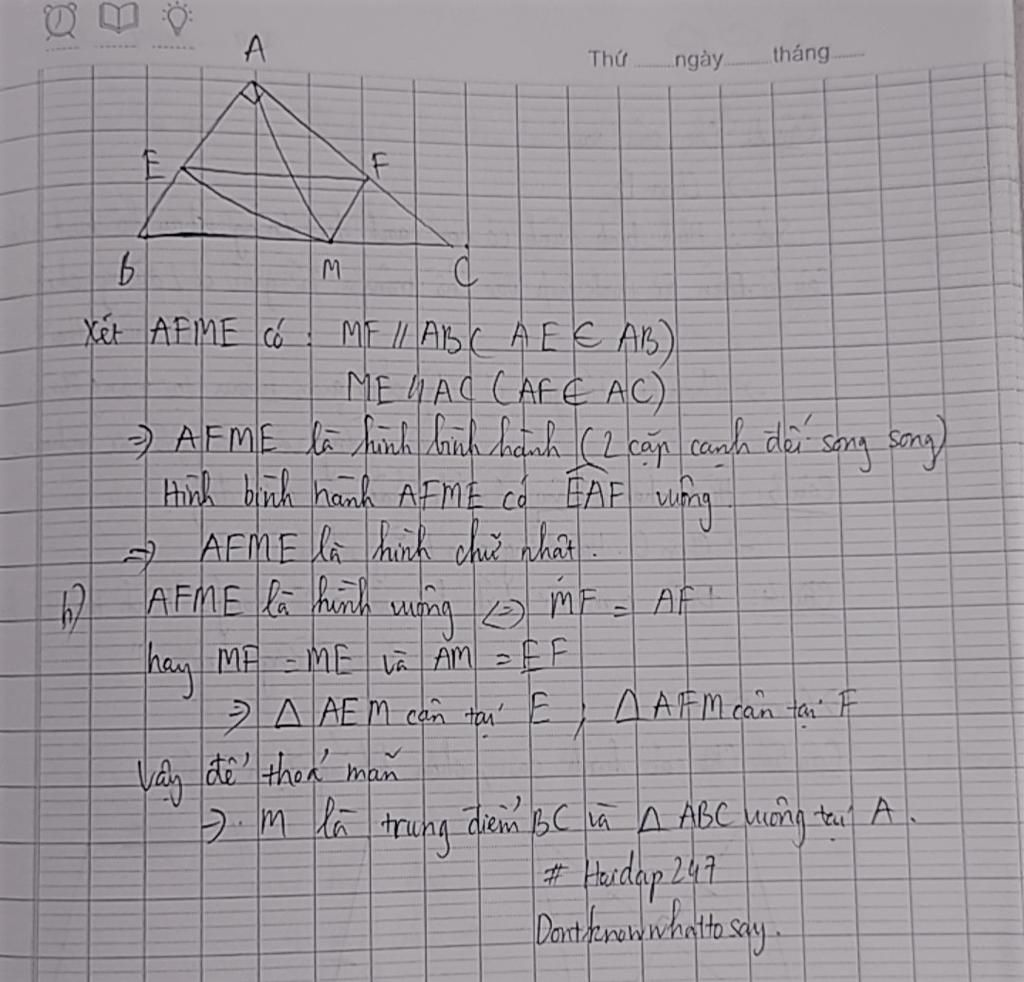 Thứ ngày tháng
A
E F
B M C
Xét AFME có : MF // AB ( AE ∈ AB)
ME // AC (AF ∈ AC)
=> AFME là hình bình hành (2 cặp cạnh đối song song)
Hình bình hành AFME có EAF vuông
=> AFME là hình chữ nhật.
b) AFME là hình vuông <=> MF = AF
hay MF = ME và AM = EF
=> Δ AEM cân tại E ; Δ AFM cân tại F
Vậy để thoả mãn
=> M là trung điểm BC và Δ ABC vuông tại A.
# Hoidap247
Dontknowwhattosay.